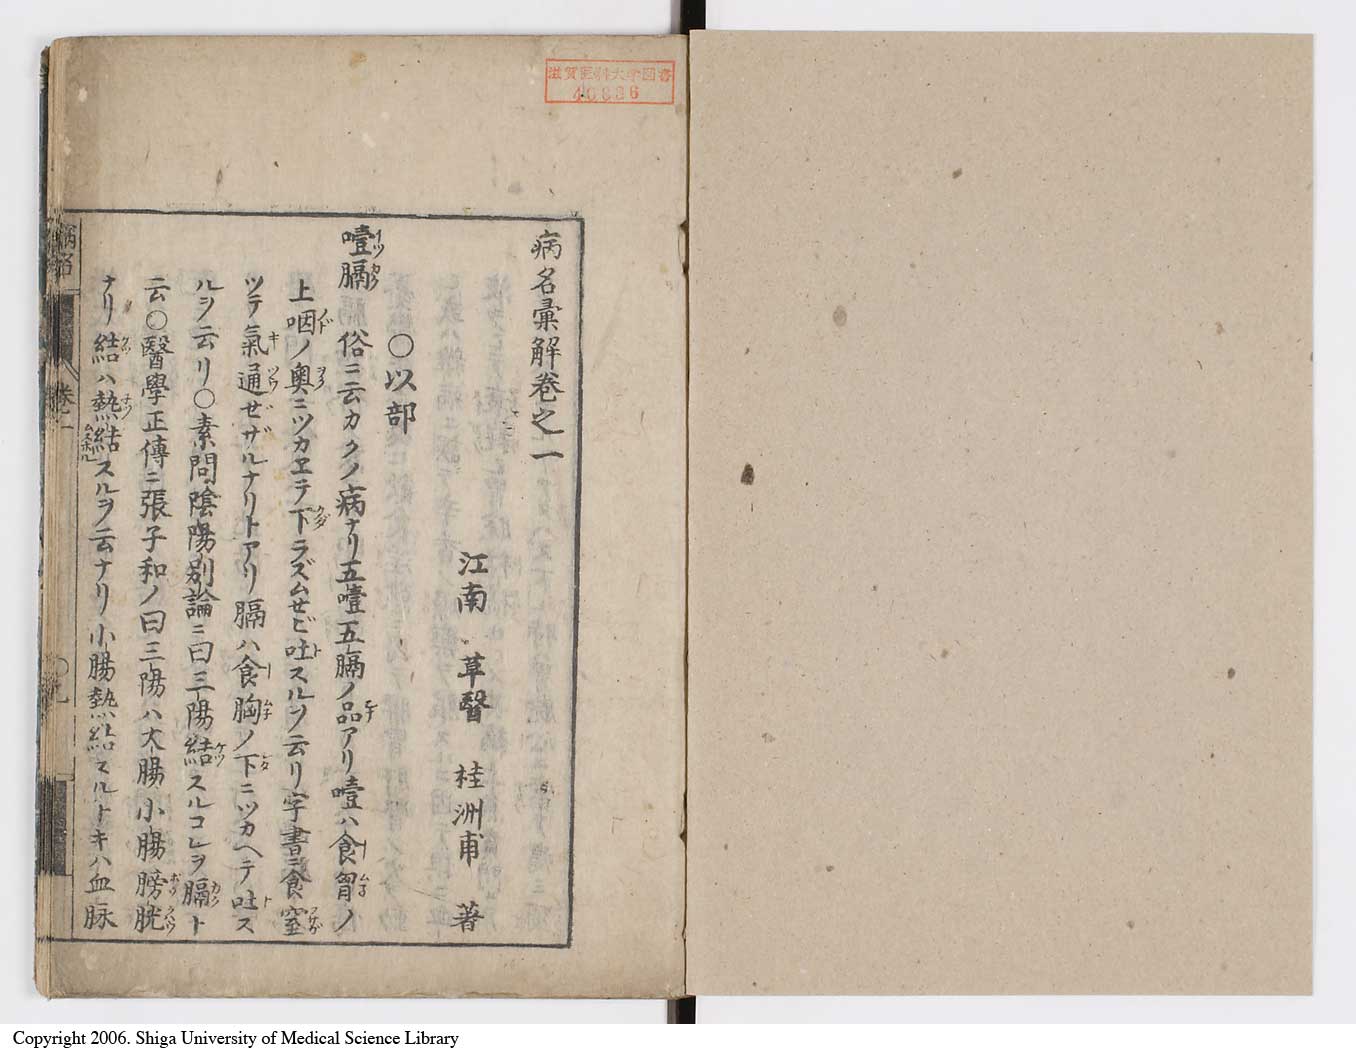 滋賀医科大学図書
40886
病名彙解卷之一
江南 草醫 桂洲甫 著
〇以部
噎膈 俗ニ云カクノ病ナリ五噎五膈ノ品アリ噎ハ食胃ノ
上咽ノ奥ニツカヱテ下ラズムセビ吐スルヲ云リ字書ニ食窒
ツテ氣通ゼザルナリトアリ膈ハ食胸ノ下ニツカヘテ吐ス
ルヲ云リ〇素問陰陽別論ニ曰三陽結スルコレヲ膈ト
云〇醫學正傳ニ張子和ノ曰三陽ハ大腸小腸膀胱
ナリ結ハ熱結スルヲ云ナリ小腸熱結スルトキハ血脉
病名
卷一
Copyright 2006. Shiga University of Medical Science Library